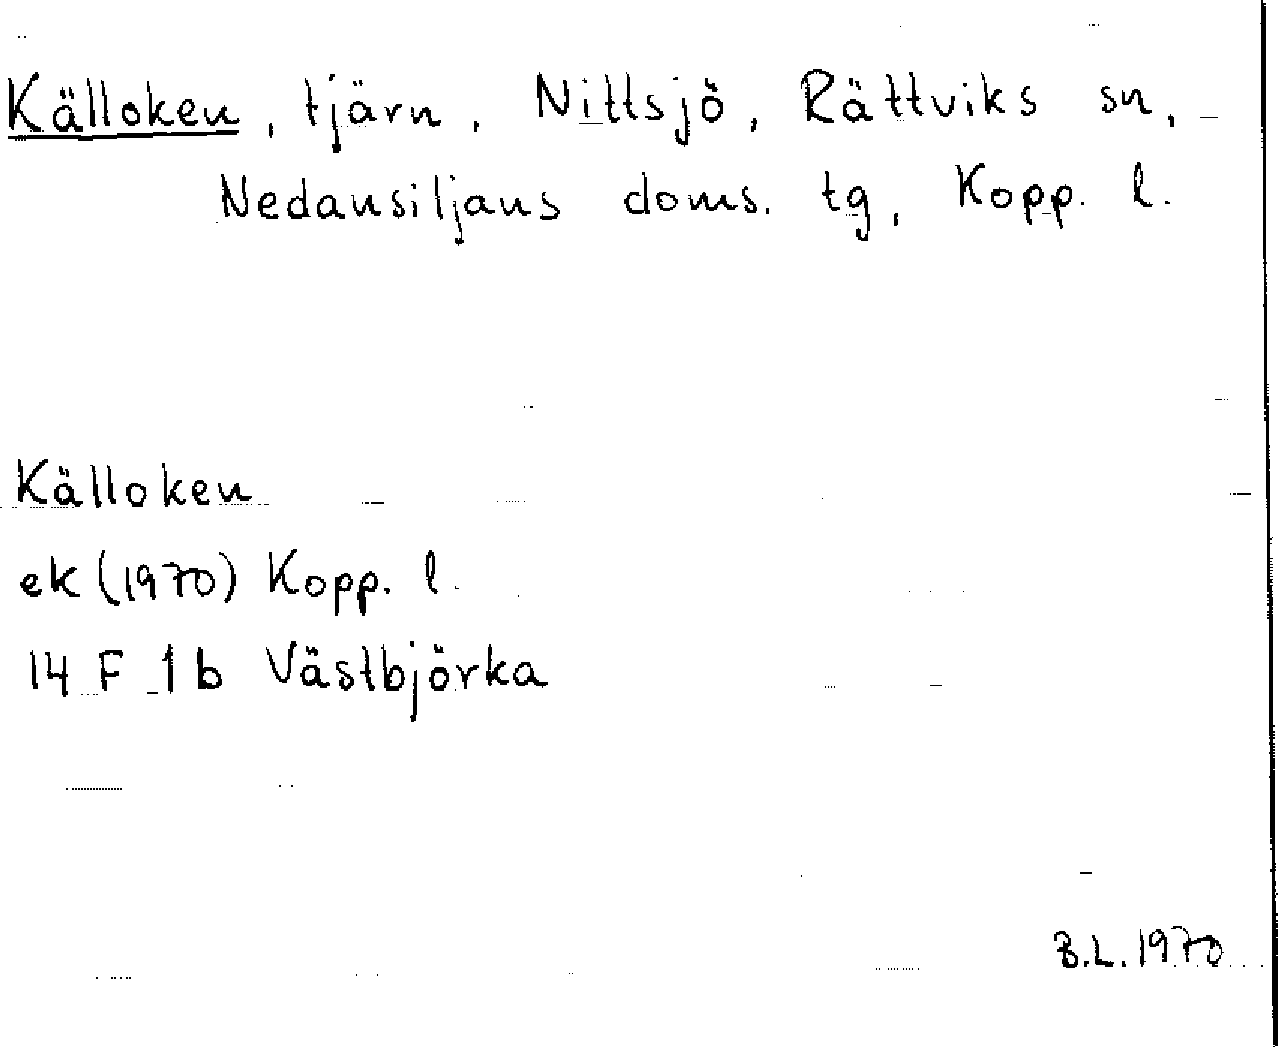 Källoken, tjärn, Nittsjö, Rättviks sn,
Nedansiljans doms. tg, Kopp. l.
Källoken
ek (1970) Kopp. l.
14 F 1 b Västbjörka
B.L. 1970